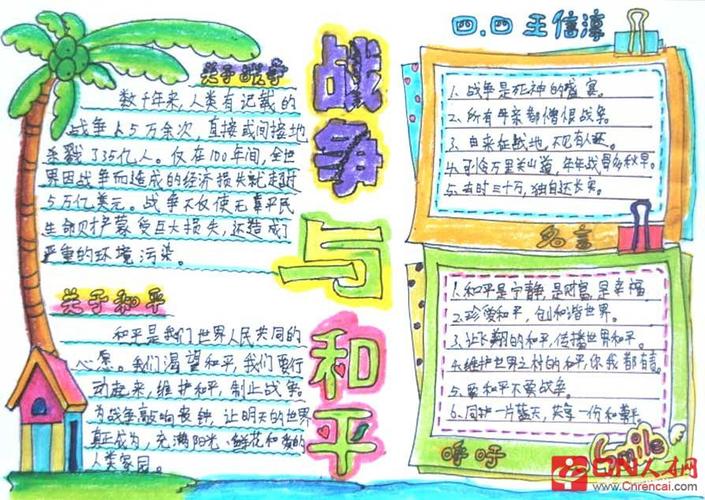 关于战争
数千年来,人类有记载的
战争占5万余次,直接或间接地
杀戮了35亿人。仅在100年间,全世
界因战争而造成的经济损失就超过
5万亿美元。战争不仅使无辜平民
生命财产蒙受巨大损失,还造成了
严重的环境污染。
关于和平
和平是我们世界人民共同的
心愿。我们渴望和平,我们要行
动起来,维护和平,制止战争。
为战争敲响丧钟,让明天的世界
真正成为,充满阳光、鲜花和爱的
人类家园。
战争与和平
四.四 王信淳
1.战争是死神的盛宴。
2.所有母亲都憎恨战争。
3.由来征战地,不见有人还。
4.可怜万里关山道,年年战骨多秋草。
5.去时三十万,独自还长安。
名言
1.和平是宁静,是财富,是幸福
2.珍爱和平,创和谐世界。
3.让飞翔的和平,传播世界和平。
4.维护世界之村的和平,你我都有责。
5.要和平不要战争。
6.同护一片蓝天,共享一份和平
呼吁
Smile
CNRN人才网
www.Cnrencai.com